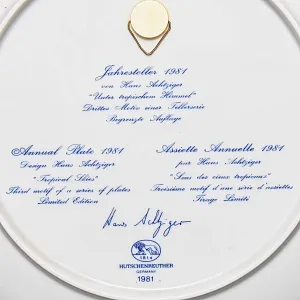 Jahresteller 1981
von Hans Achtziger
"Unter tropischem Himmel"
Drittes Motiv einer Tellerserie
Begrenzte Auflage
Annual Plate 1981
Design Hans Achtziger
"Tropical Skies"
Third motif of a series of plates
Limited Edition
Assiette Annuelle 1981
par Hans Achtziger
"Sous des cieux tropicaux"
Troisième motif d'une série d'assiettes
Tirage Limité
Hans Achtziger
1814
HUTSCHENREUTHER
GERMANY
1981